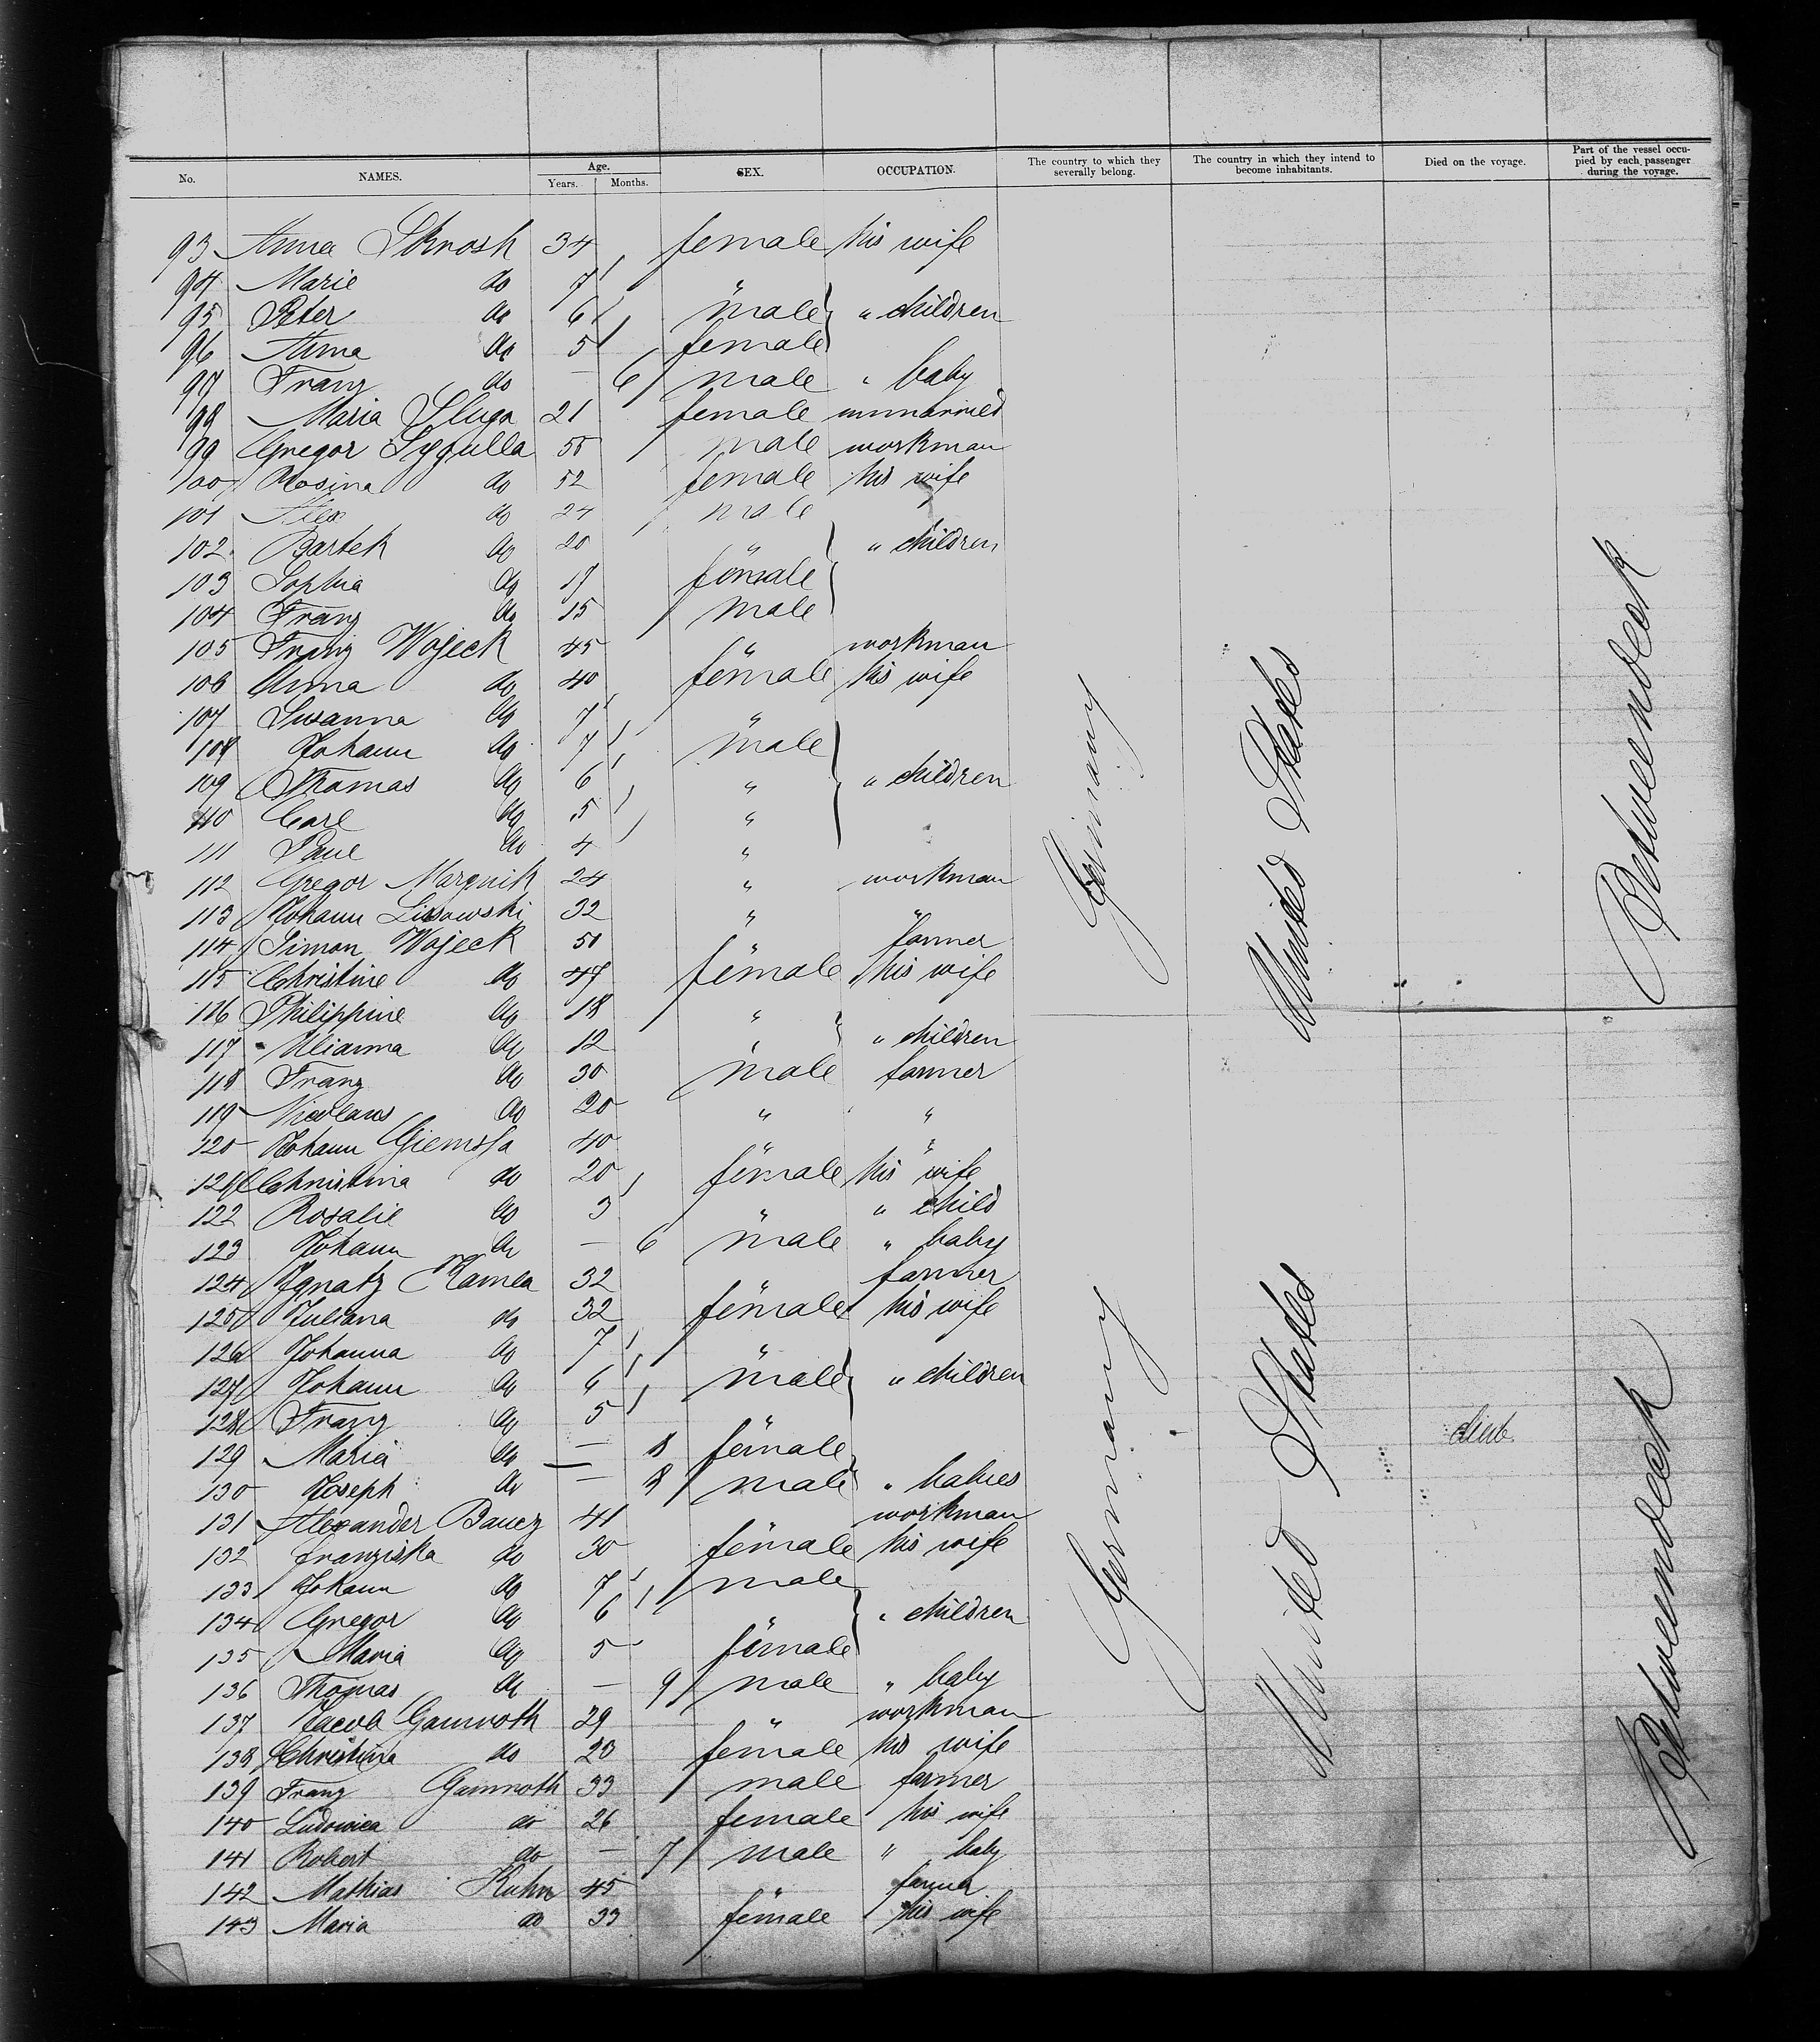 No. NAMES. Age. Years. Months. SEX. OCCUPATION. The country to which they severally belong. The country in which they intend to become inhabitants. Died on the voyage. Part of the vessel occupied by each passenger during the voyage.
93 Anna Skrosk 34 female his wife
94 Marie do 7 "
95 Peter do 6 male " children
96 Anna do 5 female
97 Franz do — 6 male " baby
98 Maria Sluga 21 female unmarried
99 Gregor Sygulla 55 male workman
100 Rosina do 52 female his wife
101 Alex do 24 male
102 Bartek do 20 " " children
103 Sophia do 17 female
104 Franz do 15 male
105 Franz Wojeck 45 " workman
106 Anna do 40 female his wife
107 Susanna do 7 "
108 Johann do 7 male
109 Thomas do 6 " " children
110 Carl do 5 "
111 Paul do 4 "
112 Gregor Marznik 24 " workman
113 Johann Lissowski 32 " "
114 Simon Wojeck 50 " farmer
115 Christine do 47 female his wife
116 Philippine do 18 "
117 Ulianna do 12 " " children
118 Franz do 30 male farmer
119 Nicolaus do 20 " "
120 Johann Giemssa 40 " "
121 Christina do 20 female his wife
122 Rosalie do 3 " " child
123 Johann do — 6 male " baby
124 Ignatz Kamla 32 " farmer
125 Juliana do 32 female his wife
126 Johanna do 7 "
127 Johann do 6 male " children
128 Franz do 5 "
129 Maria do — 8 female died
130 Joseph do — 8 male " babies
131 Alexander Baucz 41 " workman
132 Franziska do 30 female his wife
133 Johann do 7 male
134 Gregor do 6 " " children
135 Maria do 5 female
136 Thomas do — 9 male " baby
137 Jacob Gamroth 29 " workman
138 Christina do 20 female his wife
139 Franz Gamroth 33 male farmer
140 Ludowica do 26 female his wife
141 Robert do — 7 male " baby
142 Mathias Kuhn 45 " farmer
143 Maria do 33 female his wife
Germany
United States
Betweendeck
Germany
United States
Betweendeck